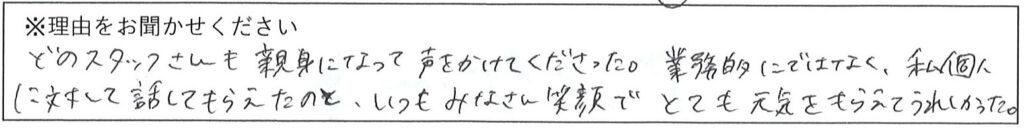 ※理由をお聞かせください
どのスタッフさんも親身になって声をかけてくださった。業務的にではなく、私個人
に対して話してもらえたのと、いつもみなさん笑顔でとても元気をもらえてうれしかった。